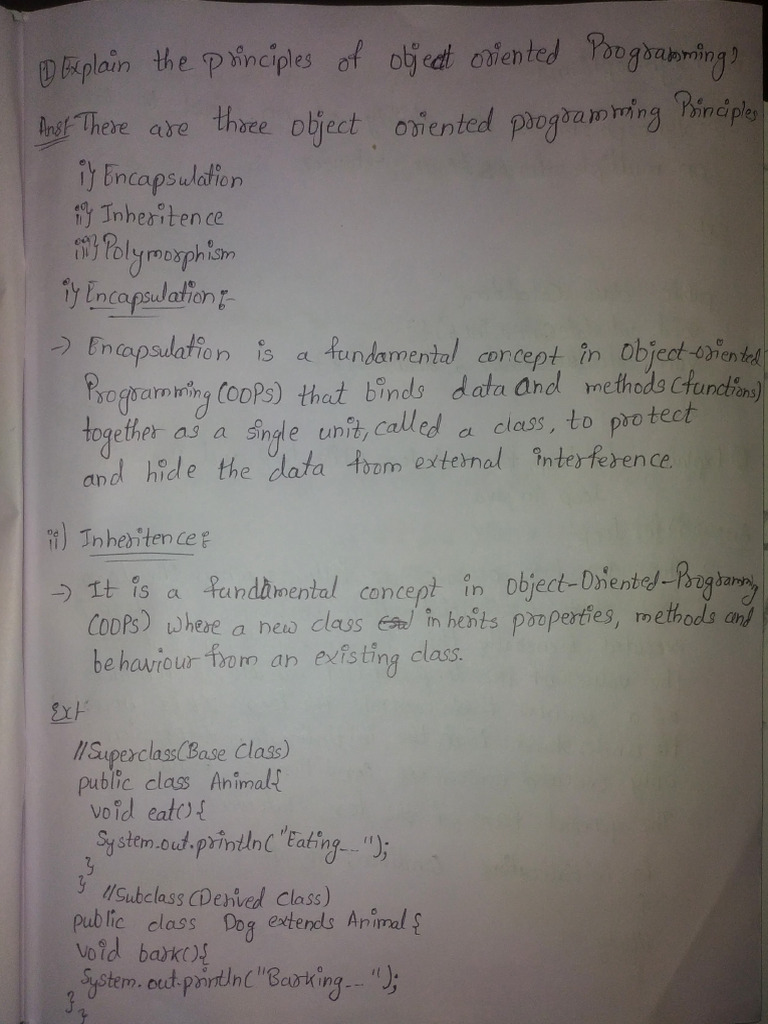 ① Explain the principles of object oriented Programming?
Ans: There are three object oriented programming Principles
i) Encapsulation
ii) Inheritence
iii) Polymorphism
i) Encapsulation:-
→ Encapsulation is a fundamental concept in Object-oriented
Programming (OOPs) that binds data and methods (functions)
together as a single unit, called a class, to protect
and hide the data from external interference.
ii) Inheritence:
→ It is a fundamental concept in Object-Oriented-Programming
(OOPs) where a new class inherits properties, methods and
behaviour from an existing class.
Ex:
//Superclass(Base Class)
public class Animal{
void eat(){
System.out.println("Eating...");
}
} //Subclass (Derived Class)
public class Dog extends Animal{
void bark(){
System.out.println("Barking...");
}
}